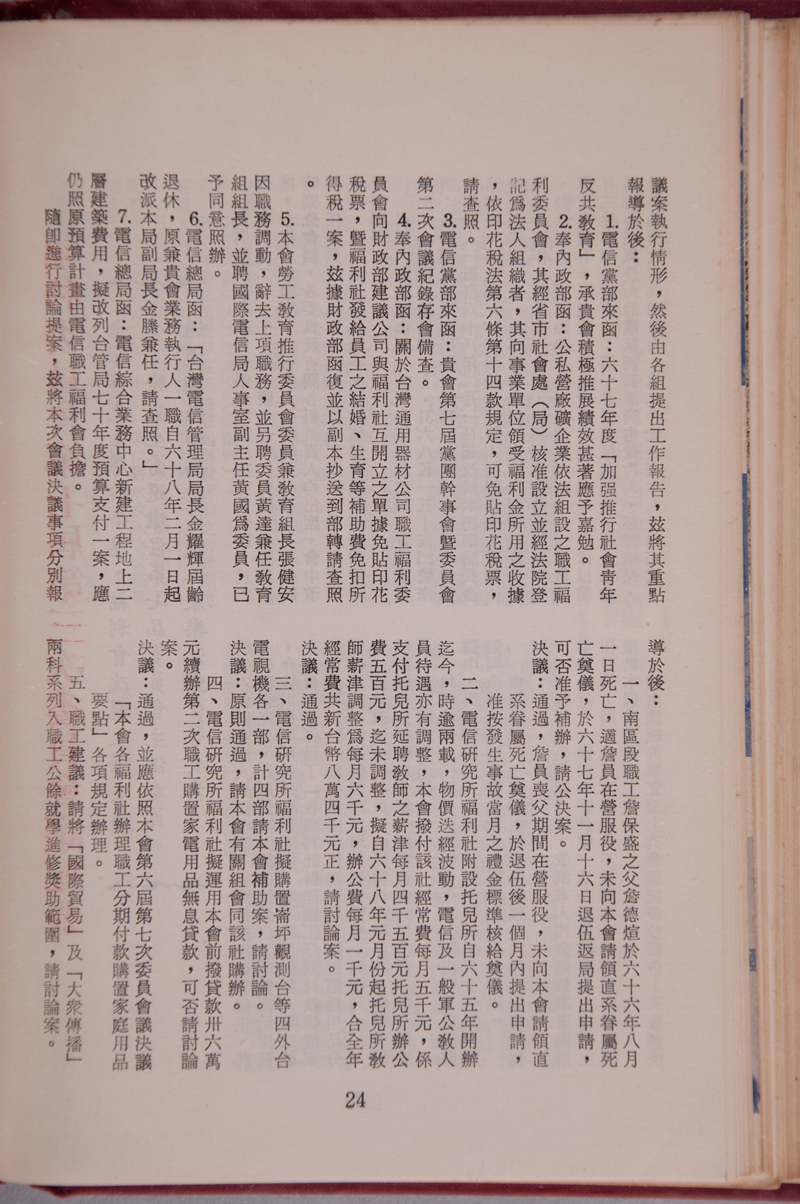 議案執行情形，然後由各組提出工作報告，玆將其重點
報導於後：
1.電信黨部來函：六十七年度「加强推行社會靑年
反共敎育」，承貴會積極推展績效甚著應予嘉勉。
2.奉內政部函：公私營廠礦企業依法組設之職工福
利委員會，其經省市社會處（局）核准設立並經法院登
記爲法人組織者，其向事業單位領受福利金所用之收據
，依印花稅法第六條第十四款規定，可免貼印花稅票，
請查照。
3.電信黨部來函：貴會第七屆黨團幹事會暨委員會
第二次會議紀錄存會備查。
4.奉內政部函：關於台灣通用器材公司職工福利委
員會向財政部建議公司與福利社互開立之單據免貼印花
稅票，暨福利社發給員工之結婚、生育等補助費免扣所
得稅一案，玆據財政部函復並以副本抄送到部轉請查照
。
5.本會勞工敎育推行委員會委員兼敎育組長張健安
因職務調動，辭去上項職務，並另聘委員黃達兼任敎育
組組長，並聘國際電信局人事室副主任黃國爲委員，已
予同意照辦。
6.電信總局函：「台灣電信管理局局長金耀輝屆齡
退休，原兼貴會業務執行人一職自六十八年二月一日起
改派本局副局長金縢兼任，請查照。」
7.電信總局函：電信綜合業務中心新建工程地上二
層建築費用，擬改列台管局七十年度預算支付一案，應
仍照原預算計畫由電信職工福利會負擔。
隨卽進行討論提案，玆將本次會議決議事項分別報
導於後：
一、南區段職工詹保盛之父詹德煊於六十六年八月
一日死亡，適詹員在營服役，未向本會請領直系眷屬死
亡奠儀，於六十七年十一月十六日退伍返局提出申請，
可否准予補辦，請公決案。
決議：通過，詹員喪父期間在營服役，未向本會請領直
系眷屬死亡奠儀，於退伍後一個月內提出申請，
准按發生事故當月之禮金標準核給奠儀。
二、電信研究所福利社附設托兒所自六十五年開辦
迄今，時逾兩載，物價迭經波動，電信及一般軍公敎人
員待遇亦有調整，本會撥付該社經常費每月五千元，係
支付托兒所延聘敎師之薪津每月四千五百元托兒所辦公
費五百元，迄未調整，擬自六十八年元月份起托兒所敎
師薪津調整爲每月六千元，辦公費每月一千元，合全年
經常費共新台幣八萬四千元正，請討論案。
決議：通過。
三、電信研究所福利社擬購置崙坪觀測台等四外台
電視機各一部，計四部請本會補助案，請討論。
決議：原則通過，請本會有關組會同該社購辦。
四、電信研究所福利社擬運用本會前撥貸款卅六萬
元續辦第二次職工購置家電用品無息貸款，可否請討論
案。
決議：通過，並應依照本會第六屆第七次委員會議決議
「本會各福利社辦理職工分期付款購置家庭用品
要點」各項規定辦理。
五、職工建議：請將「國際貿易」及「大衆傳播」
兩科系列入職工公餘就學進修獎助範圍，請討論案。
24